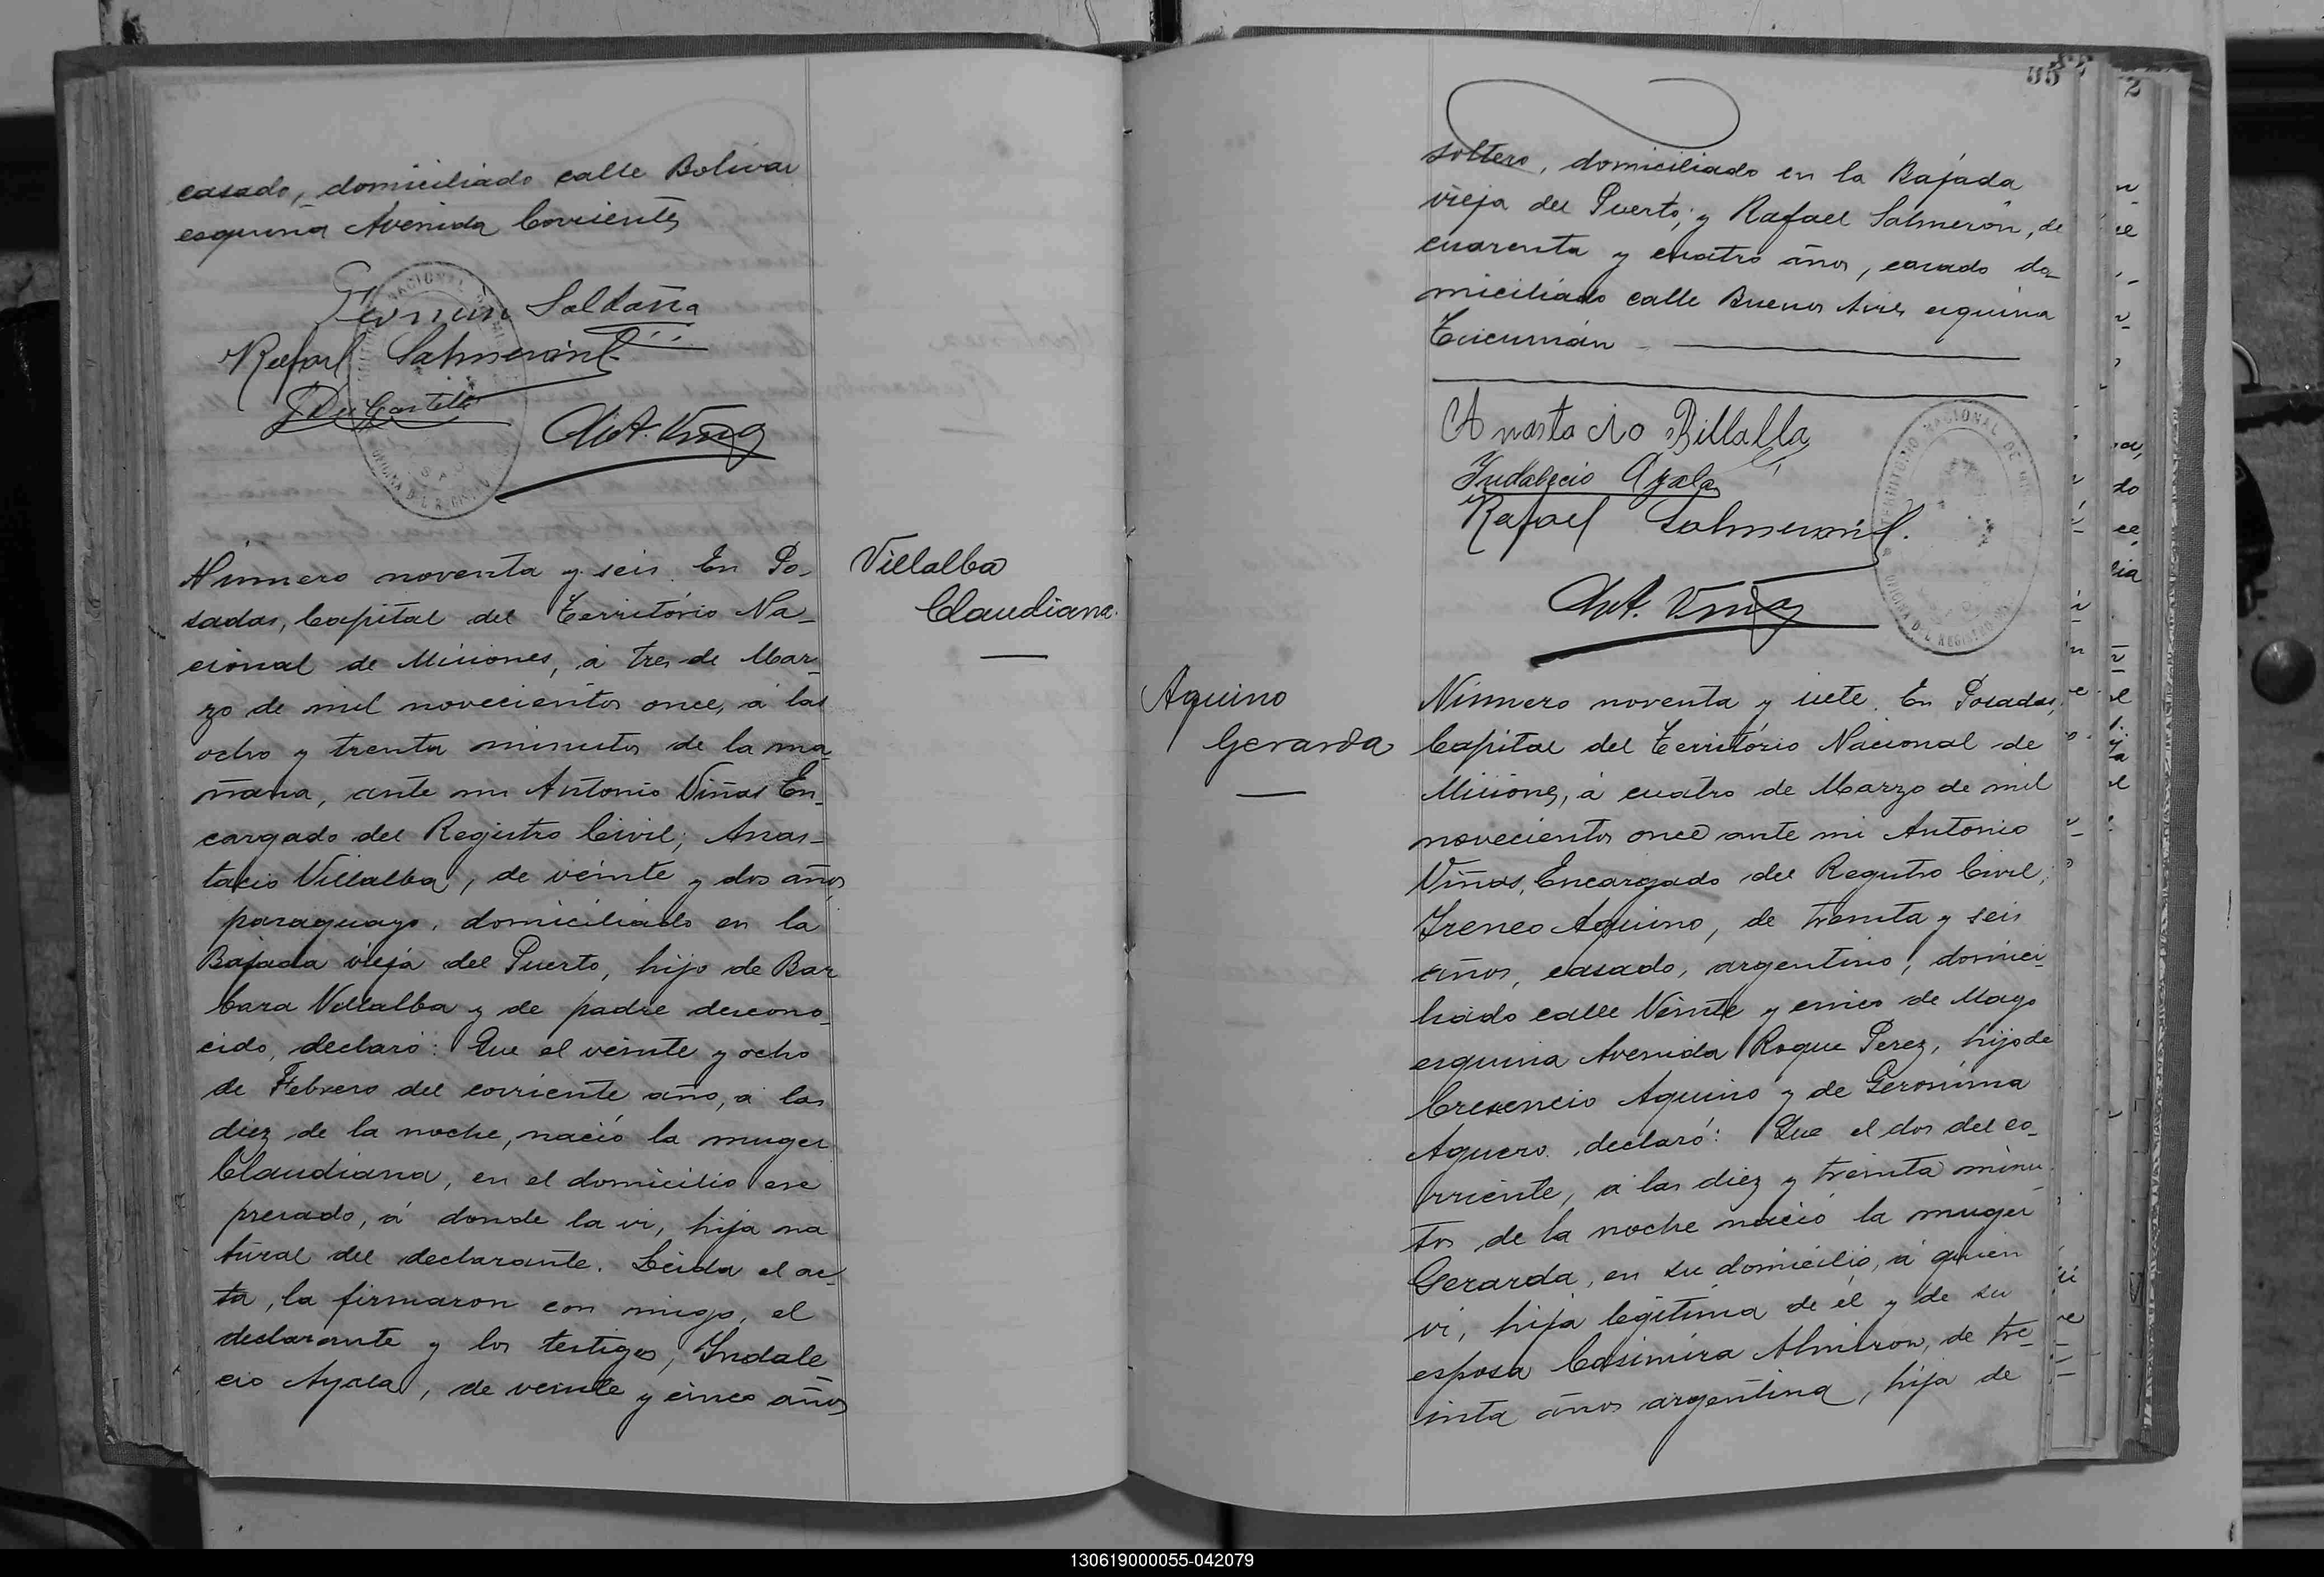 casado, domiciliado calle Bolivar
esquina Avenida Corrientes
German Saldaña
Rafael Salmerón
Ant. Viñas
Villalba
Claudiana.
Número noventa y seis. En Po-
sadas, Capital del Território Na-
cional de Misiones, á tres de Mar-
zo de mil novecientos once, á las
ocho y trenta minutos de la ma-
ñana, ante mi Antonio Viñas En-
cargado del Registro Civil; Anas-
tacio Villalba, de veinte y dos años
paraguayo, domiciliado en la
Bajada vieja del Puerto, hijo de Bar
bara Villalba y de padre descono-
cido, declaró: Que el veinte y ocho
de Febrero del corriente año, á las
diez de la noche, nació la muger
Claudiana, en el domicilio exe
presado, á donde la vi, hija na
tural del declarante. Leida el ac-
ta, la firmaron con migo, el
declarante y los testigos, Indale
cio Ayala, de veinte y cinco años
55
soltero, domiciliado en la Bajada
vieja del Puerto; y Rafael Salmerón, de
cuarenta y cuatro años, casado do-
miciliado calle Buenos Aires esquina
Tucumán
Anastacio Billalla
Indalecio Ayala
Rafael Salmerón
Ant. Viñas
TERRITORIO NACIONAL DE MIS
OFICINA DEL REGISTRO
Aquino
Gerarda
Número noventa y siete. En Posadas,
Capital del Território Nacional de
Misiones, á cuatro de Marzo de mil
novecientos once ante mi Antonio
Viñas, Encargado del Registro Civil;
Ireneo Aquino, de trenta y seis
años, casado, argentino, domici-
liado calle Veinte y cinco de Mayo
esquina Avenida Roque Perez, hijo de
Cresencio Aquino y de Geronima
Aguero declaró: Que el dos del co-
rriente, á las diez y treinta minu
tos de la noche nació la muger
Gerarda, en su domicilio, á quien
vi, hija legitima de él y de su
esposa Casimira Almiron, de tre-
inta años argentina, hija de
130619000055-042079